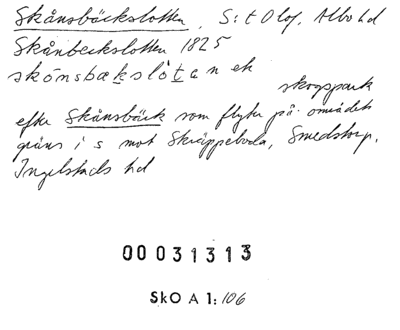 Skånsbäckslotten, S:t Olof, Albo hd
Skånbeckslotten 1825
skónsbækslòtan ek
skogspark
efter Skånsbäck som flyter på områdets
gräns i s mot Skräppeboda, Smedstorp,
Ingelstads hd
00031313
SkO A 1:106